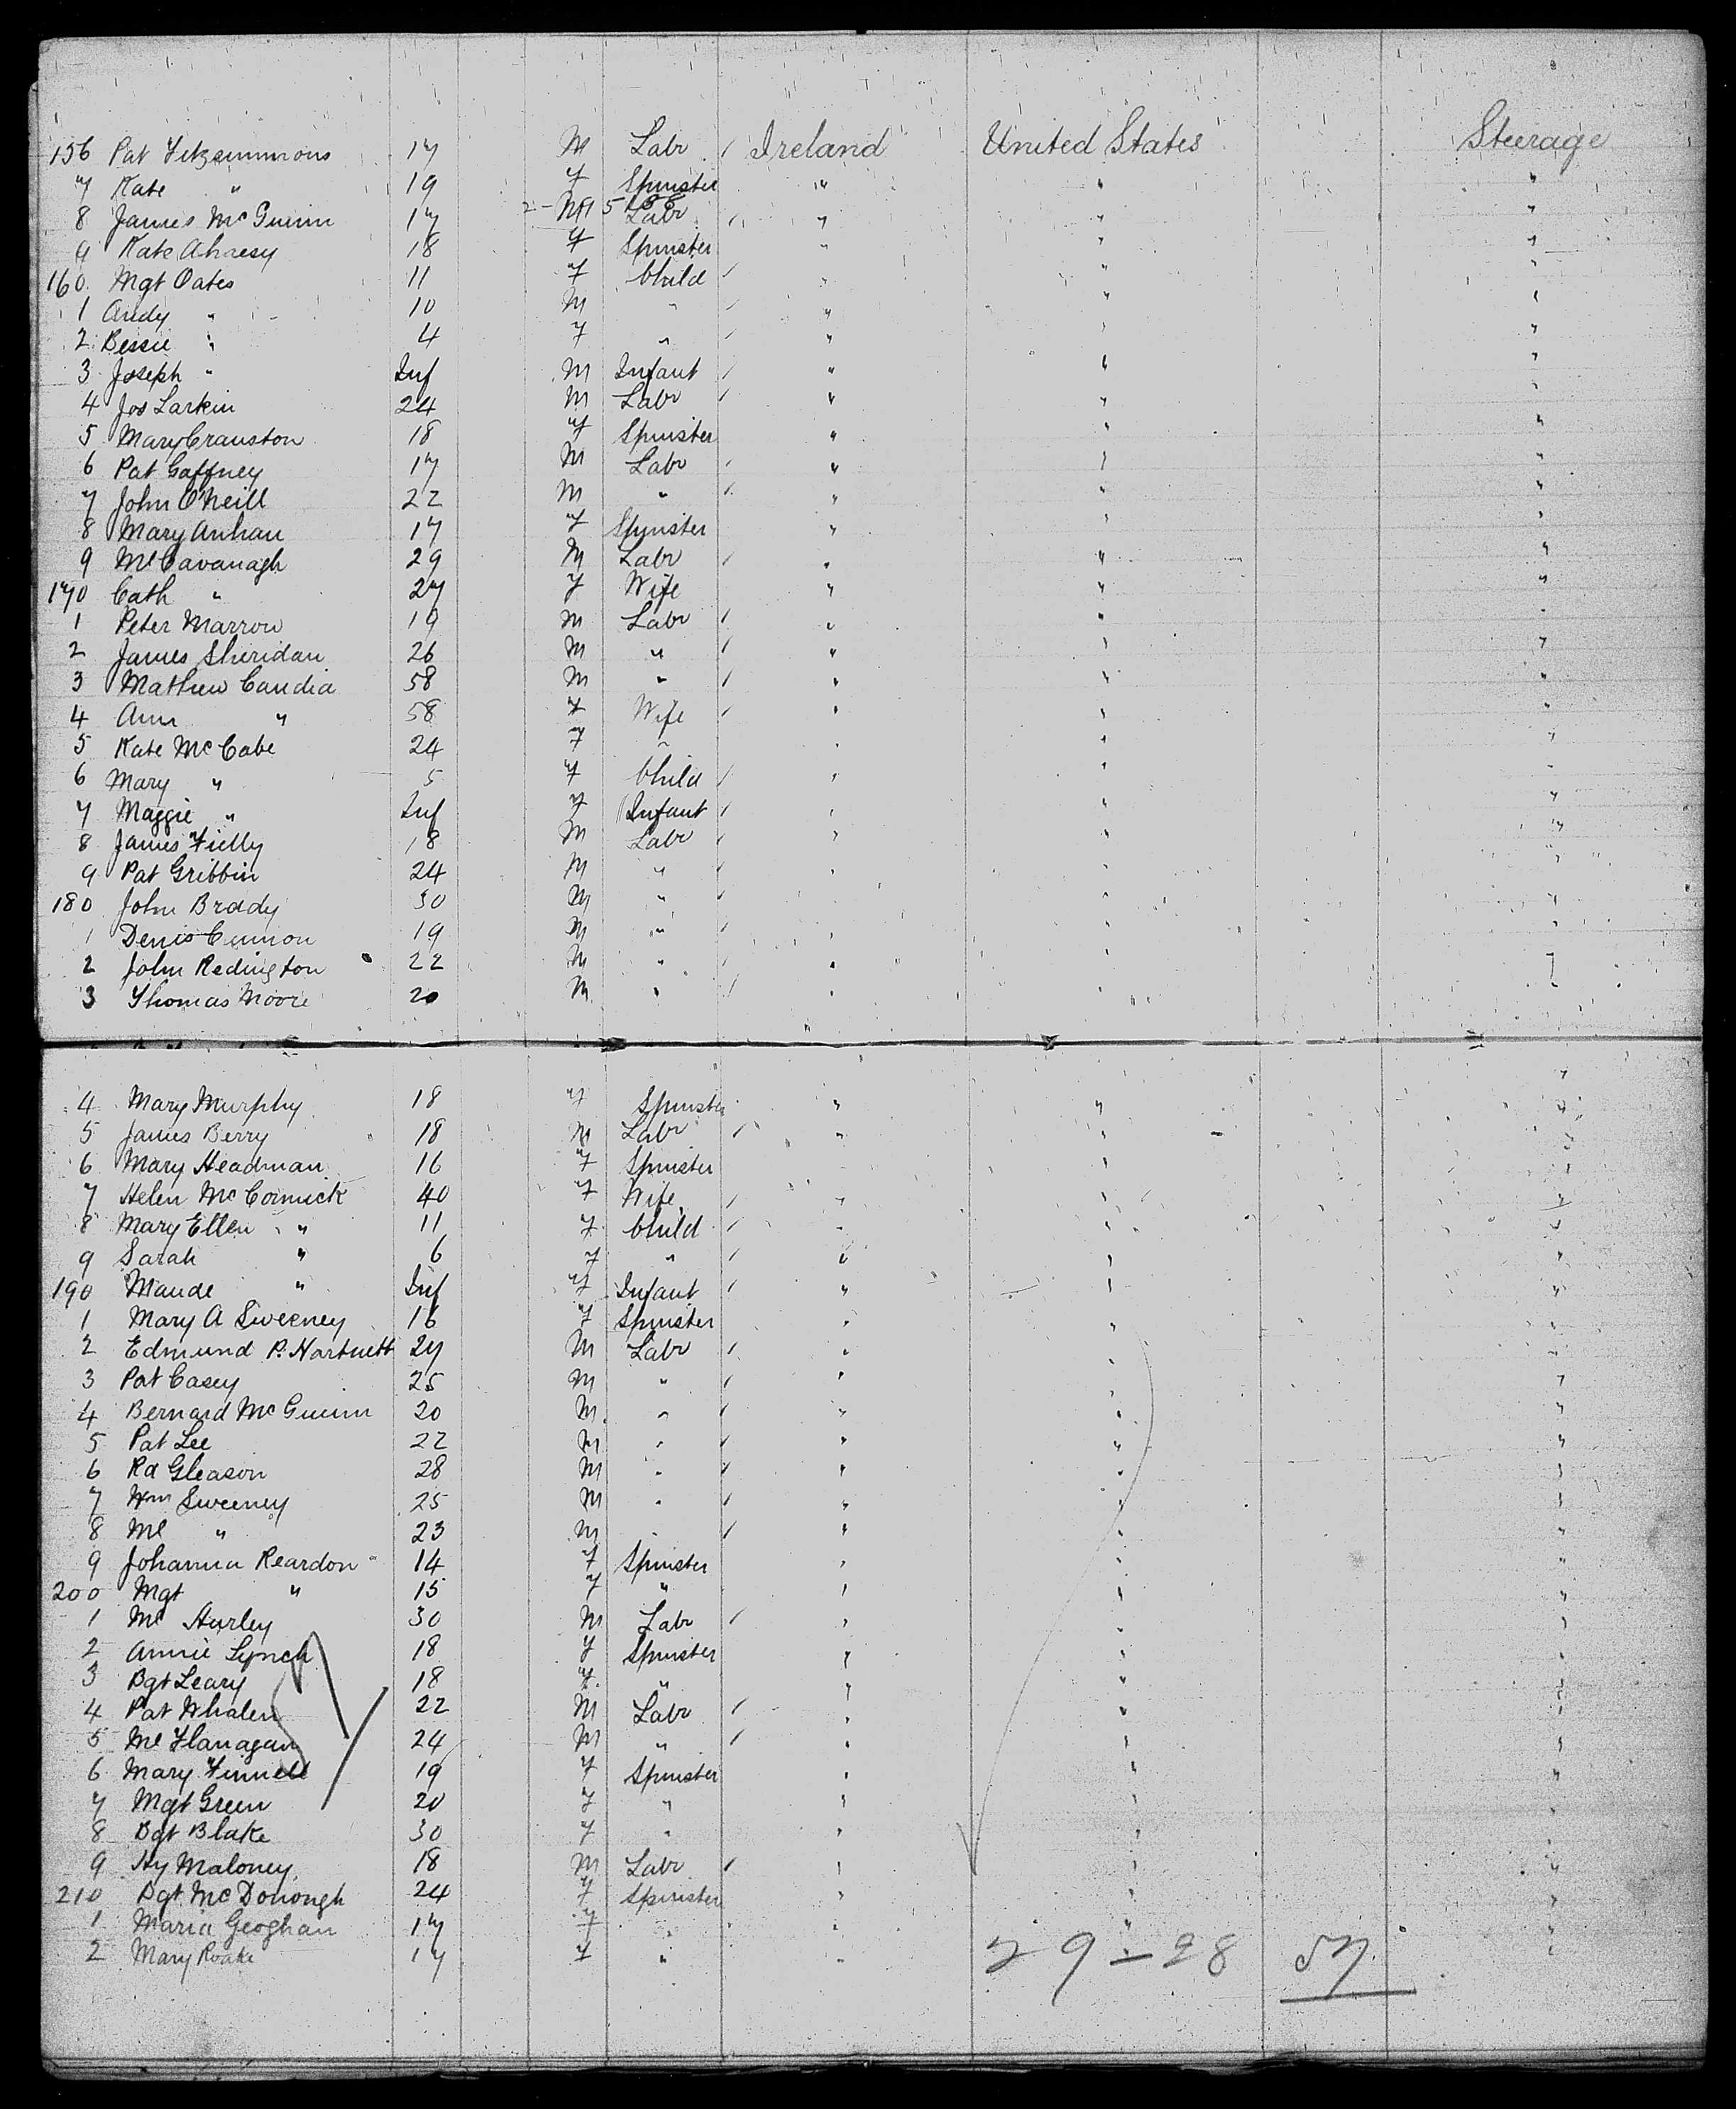 156 Pat Fitzsimmons 17 M Labr / Ireland United States Steerage
7 Kate " 19 F Spinster " " "
8 James McGuinn 17 M Labr / " " "
9 Kate 18 F Spinster " " "
160 Mgt Oates 11 F Child / " " "
1 Andy " 10 M " / " " "
2 Bessie " 4 F " / " " "
3 Joseph " Inf M Infant / " " "
4 Jos Larkin 24 M Labr / " " "
5 Mary Cranston 18 F Spinster " " "
6 Pat Gaffney 17 M Labr / " " "
7 John O'Neill 22 M " / " " "
8 Mary 17 F Spinster " " "
9 Ml Cavanagh 29 M Labr / " " "
170 Cath " 27 F Wife " " "
1 Peter Marrow 19 M Labr / " " "
2 James Sheridan 26 M " / " " "
3 Mathew Candia 58 M " / " " "
4 Ann " 58 F Wife / " " "
5 Kate McCabe 24 F " " " "
6 Mary " 5 F Child / " " "
7 Maggie " Inf F Infant / " " "
8 James 18 M Labr / " " "
9 Pat Gribbin 24 M " / " " "
180 John Brady 30 M " / " " "
1 Denis 19 M " / " " "
2 John Redington 22 M " / " " "
3 Thomas Moore 20 M " / " " "
4 Mary Murphy 18 F Spinster " " "
5 James Berry 18 M Labr / " " "
6 Mary Headman 16 F Spinster " "
7 Helen McCormick 40 F Wife / " " "
8 Mary Ellen " 11 F Child / " " "
9 Sarah " 6 F " / " " "
190 Maude " Inf F Infant / " " "
1 Mary A Sweeney 16 F Spinster " " "
2 Edmund P. Hartnett 27 M Labr / " " "
3 Pat Casey 25 M " / " " "
4 Bernard McGuinn 20 M " / " " "
5 Pat Lee 22 M " / " " "
6 Rd Gleason 28 M " / " " "
7 Wm Sweeney 25 M " / " " "
8 Ml " 23 M " / " " "
9 Johanna Reardon 14 F Spinster " " "
200 Mgt " 15 F " " " "
1 Ml Hurley 30 M Labr / " " "
2 Annie Lynch 18 F Spinster " " "
3 Bgt Leary 18 F " " " "
4 Pat Whalen 22 M Labr / " " "
5 Ml Flanagan 24 M " / " " "
6 Mary Finnell 19 F Spinster " " "
7 Mgt Green 20 F " " " "
8 Bgt Blake 30 F " " " "
9 Hy Maloney 18 M Labr / " " "
210 Bgt McDonough 24 F Spinster " " "
1 Maria Geoghan 17 F " " " "
2 Mary Roake 17 F " " "
29 - 28 57